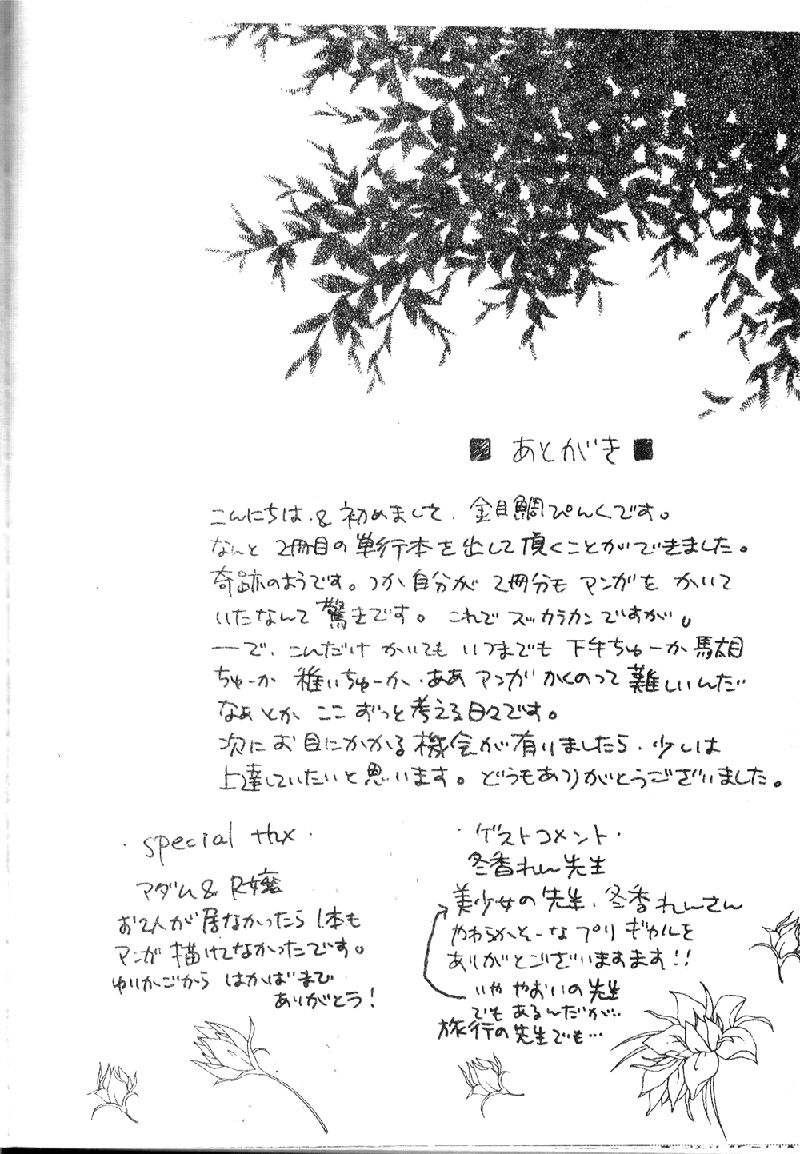 ■ あとがき ■
こんにちは & 初めまして、金目鯛ぴんくです。
なんと 2冊目の単行本を出して頂くことができました。
奇跡のようです。つか自分が 2冊分も マンガを かいて
いたなんて 驚きです。 これで スッカラカンですが。
ーで、こんだけ かいても いつまでも 下手ちゅーか 駄目
ちゅーか 稚いちゅーか、ああ マンガ かくのって 難しいんだ
なぁ とか ここ ずっと 考える日々です。
次に お目にかかる 機会が 有りましたら、少しは
上達していたいと 思います。 どうもありがとうございました。
・special thx・
マダム & R嬢
お2人が 居なかったら 1本も
マンガ 描けてなかったです。
ゆりかごから はかばまで
ありがとう!
・ゲストコメント・
冬香れん先生
美少女の 先生、冬香 れんさん
やわらかそーな プリ ギャルを
ありがとございますます!!
いや やおいの 先生
でも あるんだが…
旅行の 先生でも…